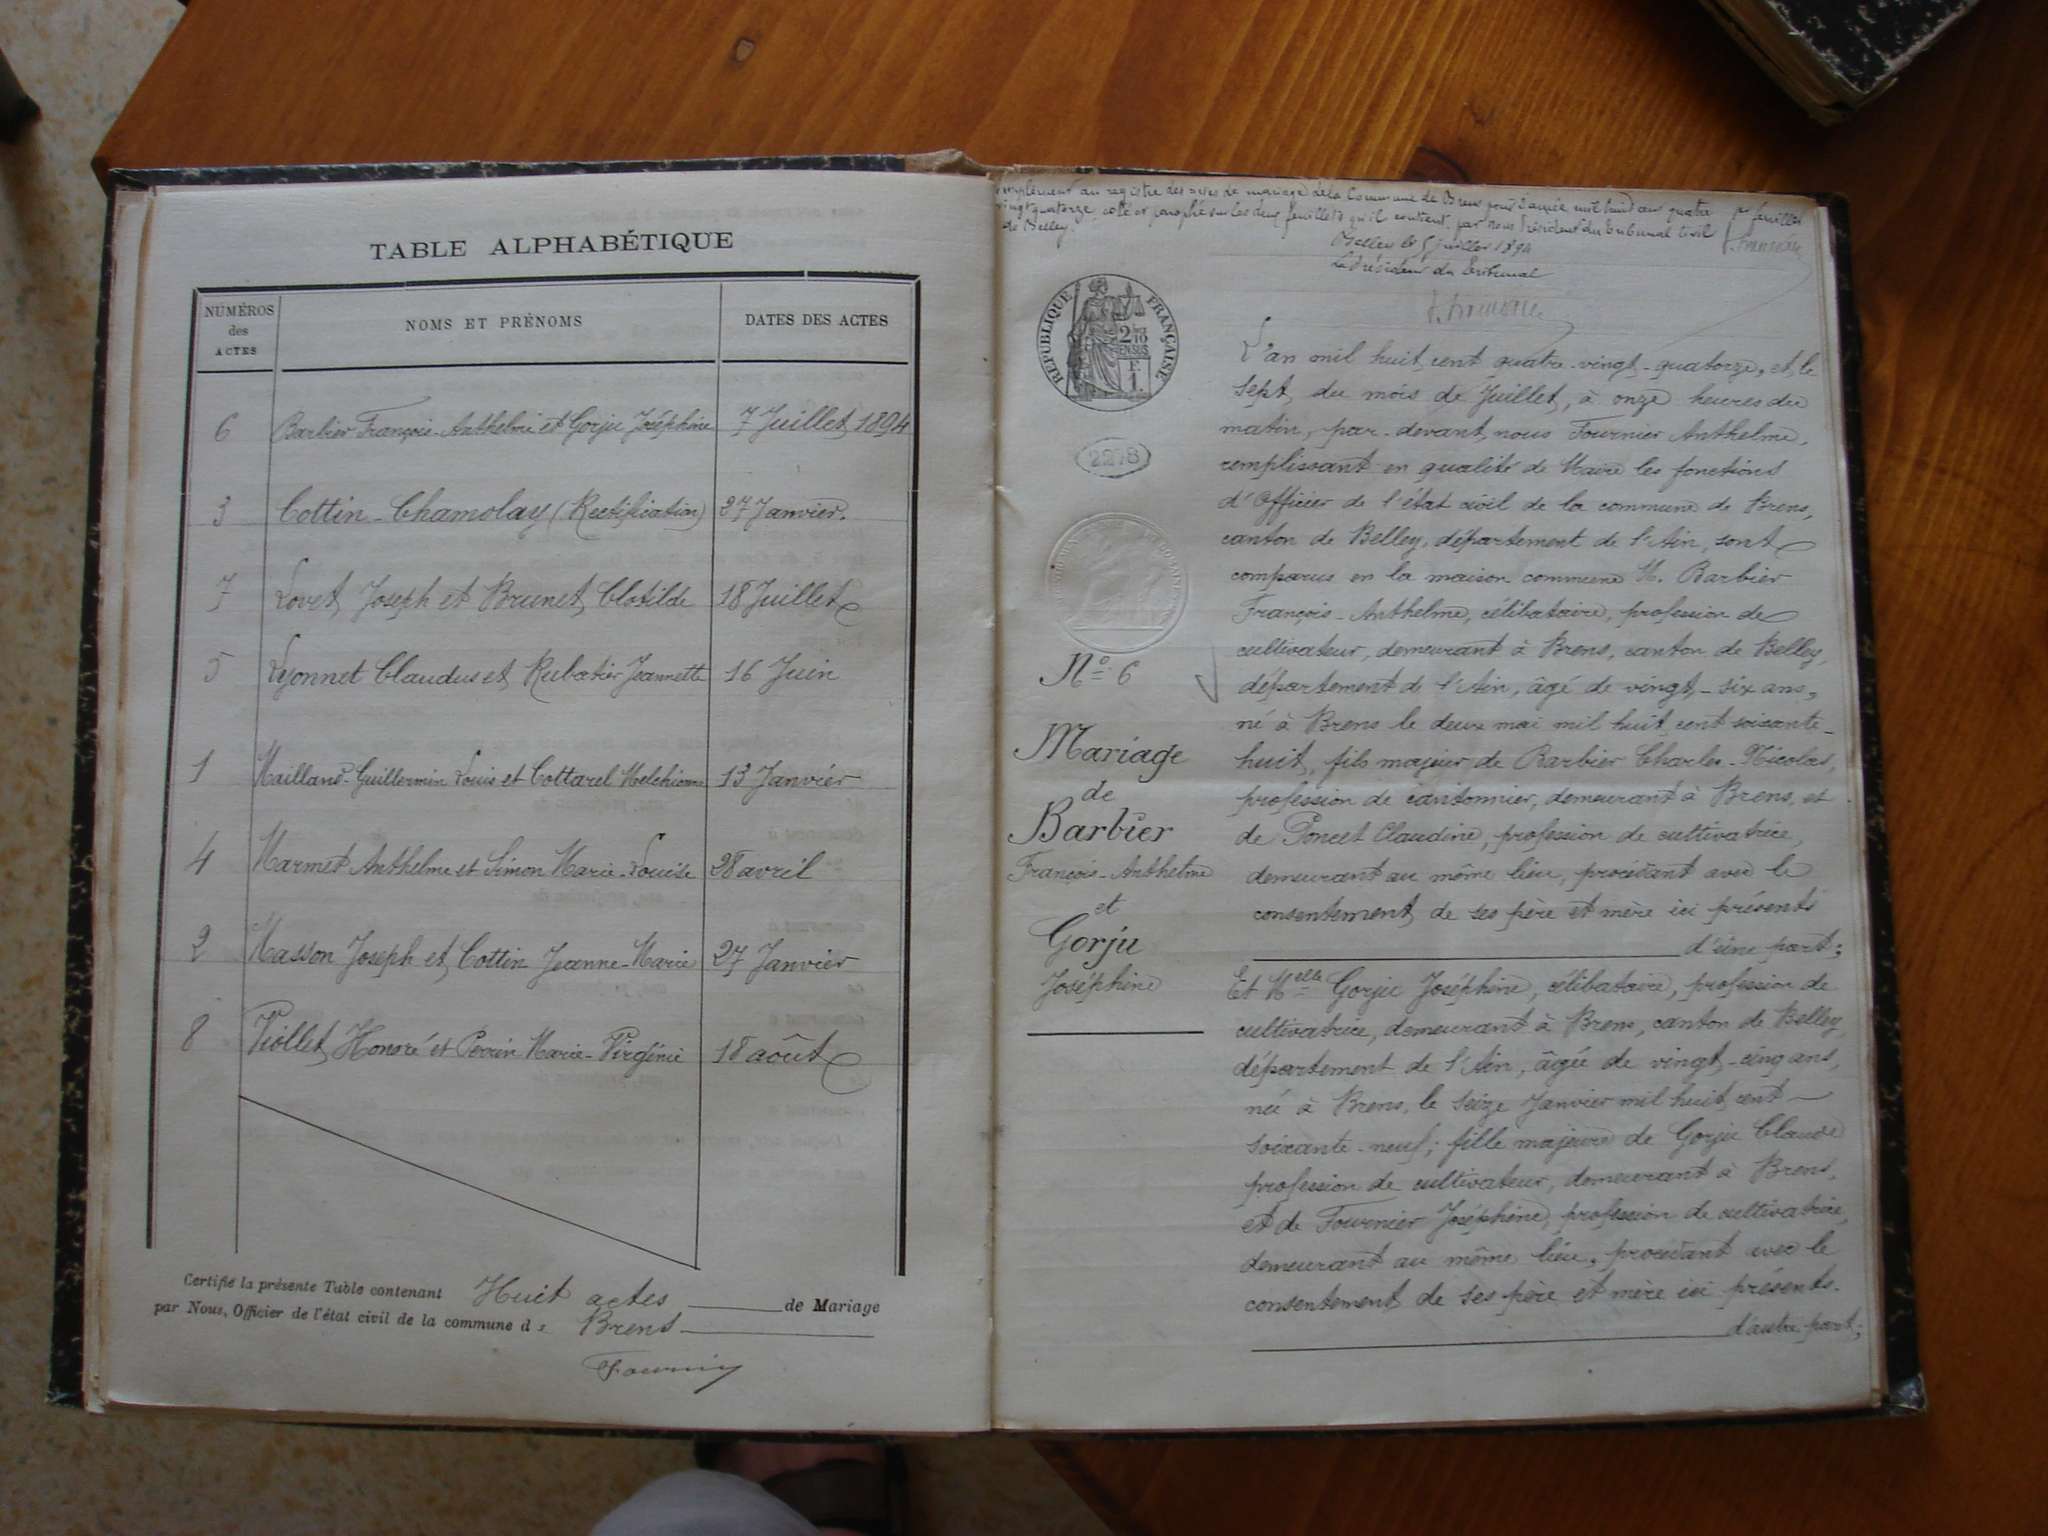 TABLE ALPHABÉTIQUE
NUMÉROS
des
ACTES
NOMS ET PRÉNOMS
DATES DES ACTES
6 Barbier François-Anthelme et Gorju Joséphine 7 Juillet 1894
3 Cottin-Chamolay (Rectification) 27 Janvier.
7 Lovet Joseph et Brunet Clotilde 18 Juillet
5 Lyonnet Claudus et Rubatier Jeannette 16 Juin
1 Mailland-Guillermin Louis et Cottarel Melchionne 13 Janvier
4 Marmet Anthelme et Simon Marie-Louise 28 avril
2 Masson Joseph et Cottin Jeanne-Marie 27 Janvier
8 Viollet Honoré et Perrin Marie-Virginie 18 août
Certifié la présente Table contenant Huit actes de Mariage
par Nous, Officier de l'état civil de la commune de Brens
Fournier
Complément au registre des actes de mariage de la Commune de Brens pour l'année mil huit cent quatre
vingt quatorze, coté et paraphé sur les deux feuillets qu'il contient par nous Président du tribunal civil
de Belley.
1er feuillet
Belley le 5 juillet 1894
Le Président du Tribunal
RÉPUBLIQUE FRANÇAISE
2/10
EN SUS
F.
1.
2278
N° 6
Mariage
de
Barbier
François-Anthelme
et
Gorju
Joséphine
L'an mil huit cent quatre-vingt-quatorze, et le
sept du mois de Juillet, à onze heures du
matin, par-devant nous Fournier Anthelme,
remplissant en qualité de Maire les fonctions
d'Officier de l'état civil de la commune de Brens,
canton de Belley, département de l'Ain, sont
comparus en la maison commune M. Barbier
François-Anthelme, célibataire, profession de
cultivateur, demeurant à Brens, canton de Belley,
département de l'Ain, âgé de vingt-six ans,
né à Brens le deux mai mil huit cent soixante-
huit, fils majeur de Barbier Charles-Nicolas,
profession de cantonnier, demeurant à Brens, et
de Poncet Claudine, profession de cultivatrice,
demeurant au même lieu, procédant avec le
consentement de ses père et mère ici présents
d'une part;
Et Melle Gorju Joséphine, célibataire, profession de
cultivatrice, demeurant à Brens, canton de Belley,
département de l'Ain, âgée de vingt-cinq ans,
née à Brens, le seize Janvier mil huit cent
soixante-neuf; fille majeure de Gorju Claude
profession de cultivateur, demeurant à Brens,
et de Fournier Joséphine, profession de cultivatrice,
demeurant au même lieu, procédant avec le
consentement de ses père et mère ici présents.
d'autre part;